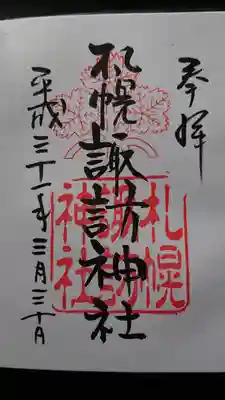 奉拝
札幌諏訪神社
札幌
諏訪
神社
平成三十一年三月三十日